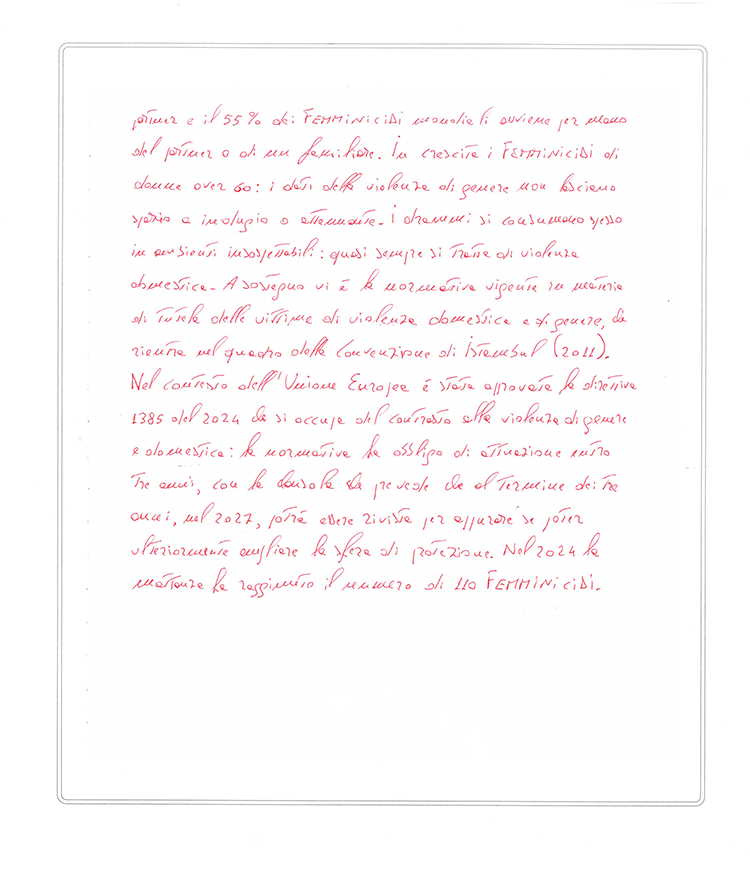 partner e il 55% dei FEMMINICIDI mondiali avviene per mano
del partner o di un familiare. In crescita i FEMMINICIDI di
donne over 60: i dati della violenza di genere non lasciano
spazio a indugio o attenuante. I drammi si consumano spesso
in ambienti insospettabili: quasi sempre si tratta di violenza
domestica. A sostegno vi è la normativa vigente in materia
di tutela delle vittime di violenza domestica e di genere, che
rientra nel quadro della Convenzione di Istanbul (2011).
Nel contesto dell'Unione Europea è stata approvata la direttiva
1385 del 2024 che si occupa del contrasto alla violenza di genere
e domestica: la normativa ha obbligo di attuazione entro
tre anni, con la clausola che prevede che al termine dei tre
anni, nel 2027, potrà essere rivista per appurare se poter
ulteriormente ampliare la sfera di protezione. Nel 2024 la
mattanza ha raggiunto il numero di 110 FEMMINICIDI.